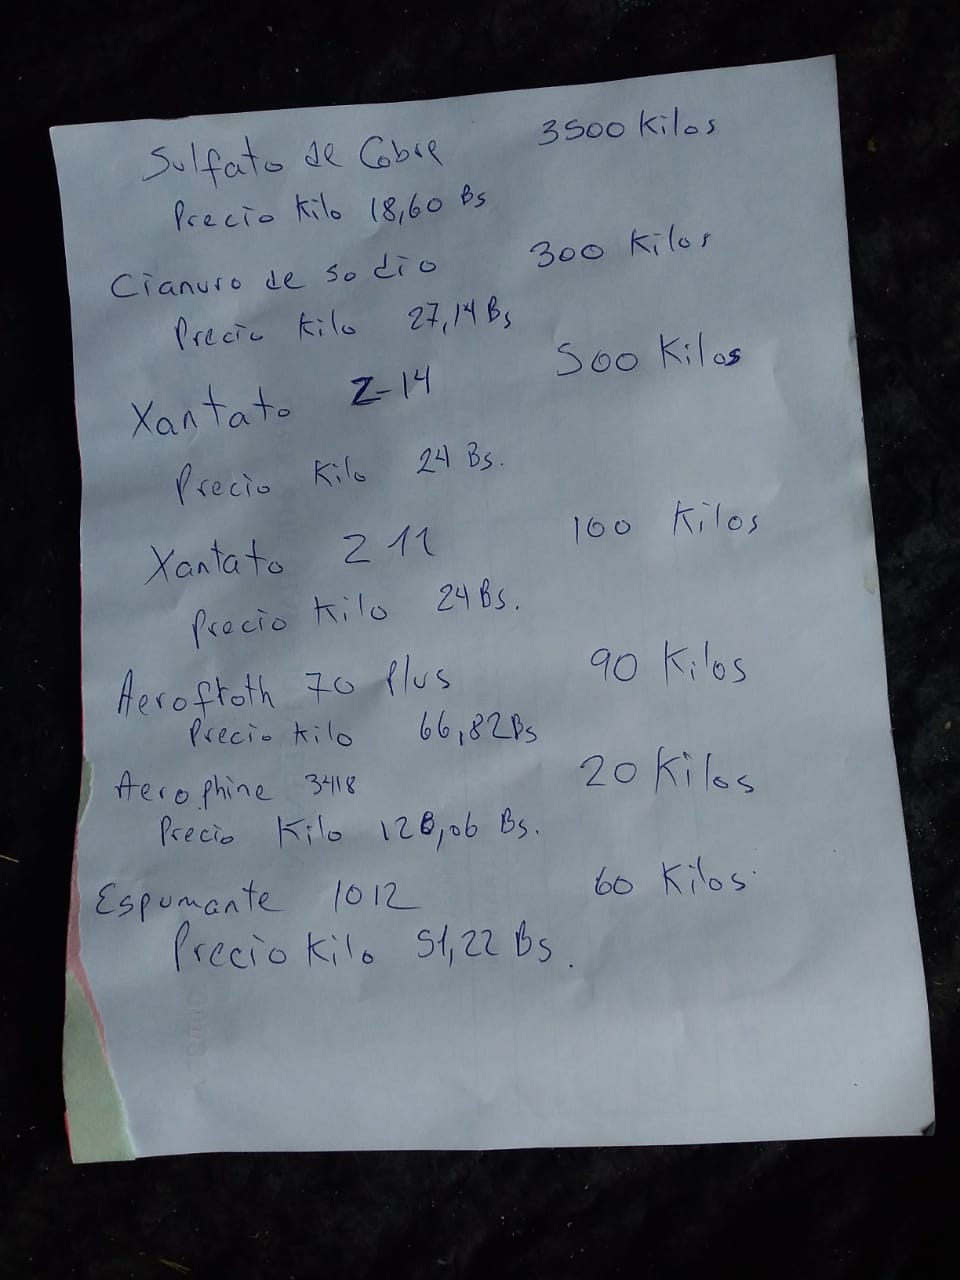 Sulfato de Cobre 3500 Kilos
Precio Kilo 18,60 Bs
Cianuro de sodio 300 Kilos
Precio Kilo 27,14 Bs
Xantato Z-14 500 Kilos
Precio Kilo 24 Bs.
Xantato Z 11 100 Kilos
Precio Kilo 24 Bs.
Aerofroth 70 Plus 90 Kilos
Precio Kilo 66,82 Bs
Aerophine 3418 20 Kilos
Precio Kilo 128,06 Bs.
Espumante 1012 60 Kilos
Precio Kilo 51,22 Bs.